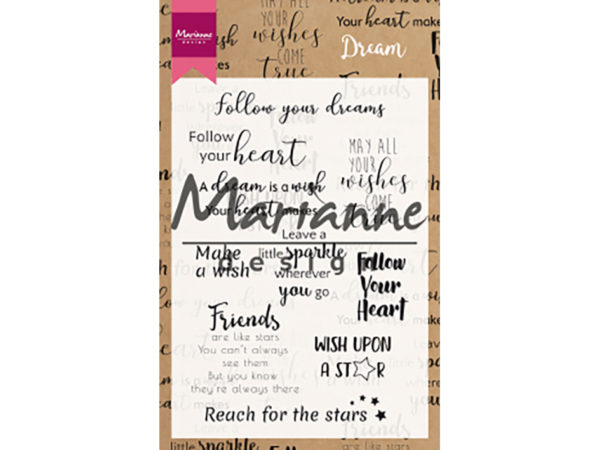 MAY ALL
YOUR
wishes
COME
True
Your heart makes
Dream
Friends
Marianne
design
Follow your dreams
Follow
your heart
MAY ALL
YOUR
wishes
COME
True
A dream is a wish
Your heart makes
Marianne
design
Leave a
little sparkle
wherever
you go
Make
a wish
Follow
Your
Heart
Friends
are like stars
You can't always
see them
But you know
they're always there
WISH UPON
A STAR
Reach for the stars
little sparkle
Friends
are like stars